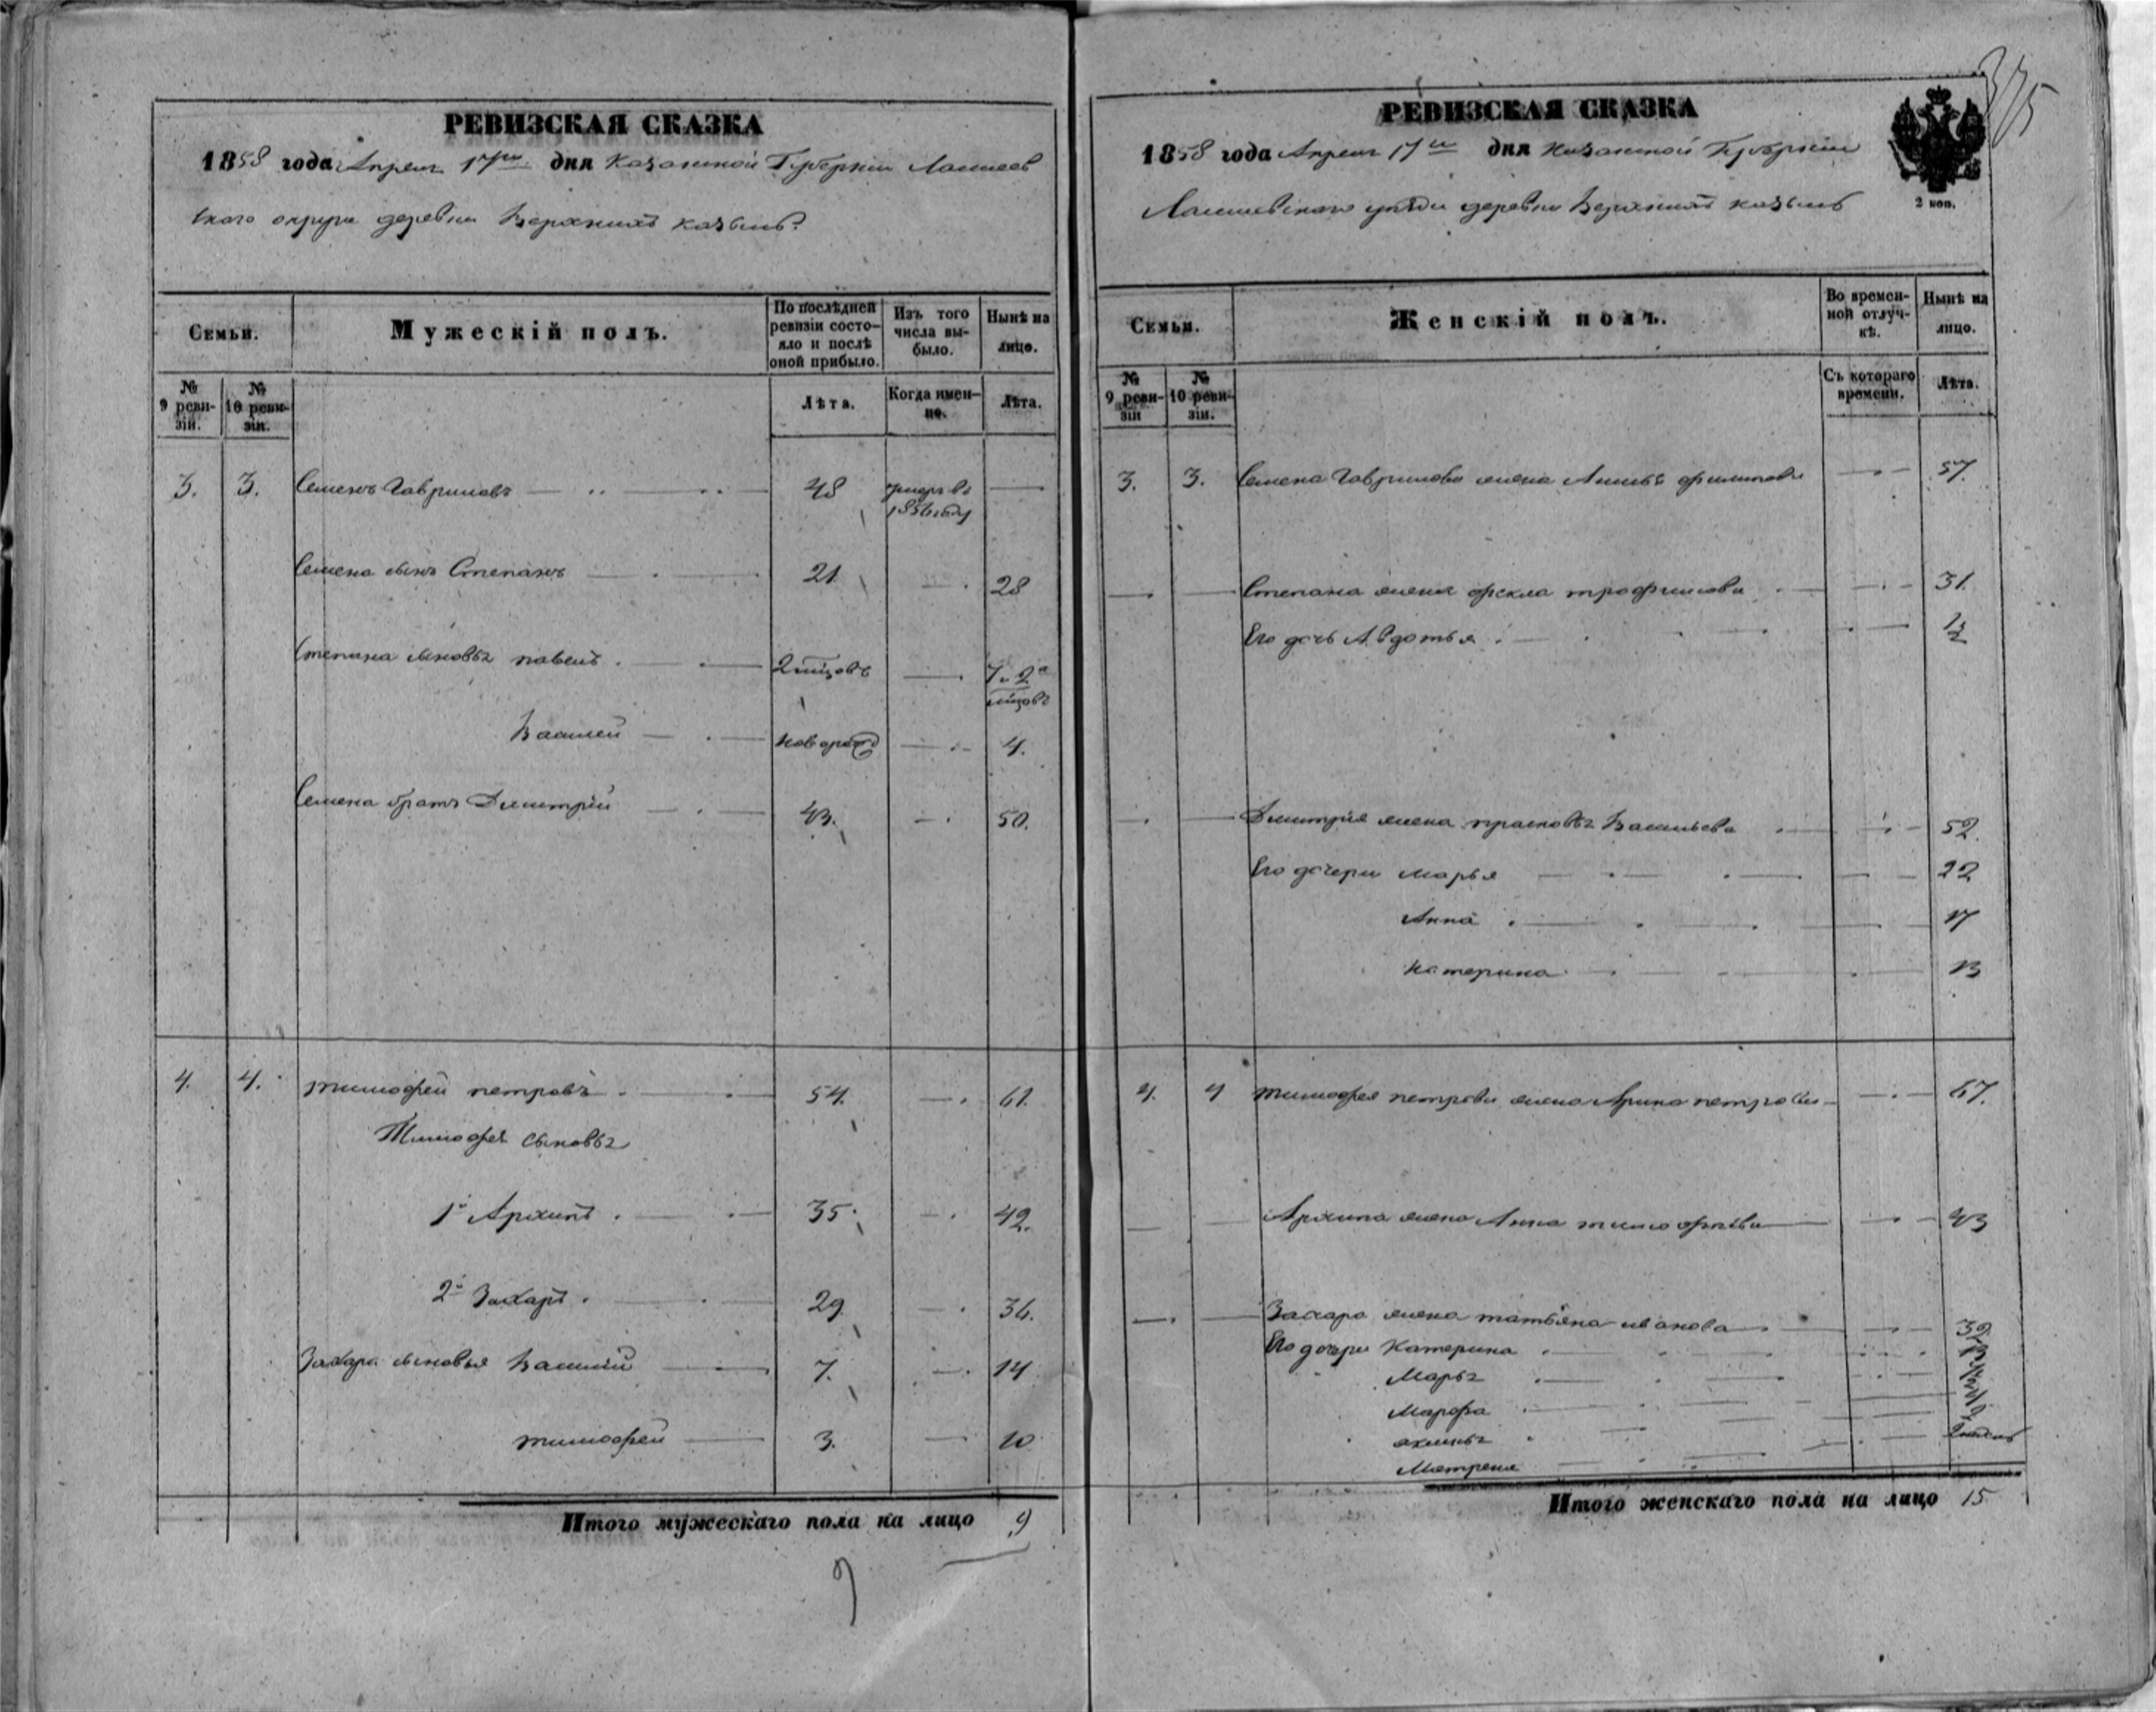 375
РЕВИЗСКАЯ СКАЗКА
1858 года Апреля 17го дня Казанской Губернии Лаишев
ского округа деревни Верхнихъ
Семьи.
Мужескій полъ.
По послѣдней ревизіи состояло и послѣ оной прибыло.
Изъ того числа выбыло.
Нынѣ на лицо.
№ 9 ревизіи.
№ 10 ревизіи.
Лѣта.
Когда именно.
Лѣта.
3. 3. Семенъ Гавриловъ 48 умеръ въ 1856 году
Семена сынъ Степанъ 21 28
Степана сыновья павелъ 2 мцовъ 7 и 2 мцовъ
Василей новорожд 4.
Семена братъ Дмитрій 43. 50.
4. 4. тимофей петровъ 54. 61.
Тимофея сыновья
1й Архипъ 35. 42.
2й Захаръ 29 36.
Захара сыновья Василий 7. 14
тимофей 3. 10
Итого мужескаго пола на лицо 9
9
РЕВИЗСКАЯ СКАЗКА
1858 года Апреля 17го дня Казанской Губернии
Лаишевского уезда деревни Верхнихъ
2 коп.
Семьи.
Женскій полъ.
Во временной отлучкѣ.
Нынѣ на лицо.
№ 9 ревизіи
№ 10 ревизіи.
Съ котораго времени.
Лѣта.
3. 3. Семена Гаврилова жена 57.
Степана жена фекла трофимова 31.
Его дочь Авдотья 1/2
Дмитрия жена прасковья Васильева 52.
Его дочери марья 22
Анна 17
Катерина 13
4. 4 тимофея петрова жена Арина петрова 67.
Архипа жена Анна тимофеева 43
Захара жена татьяна иванова 32
Его дочери Катерина
Марья
Марфа
акинья
Матрена
Итого женскаго пола на лицо 15